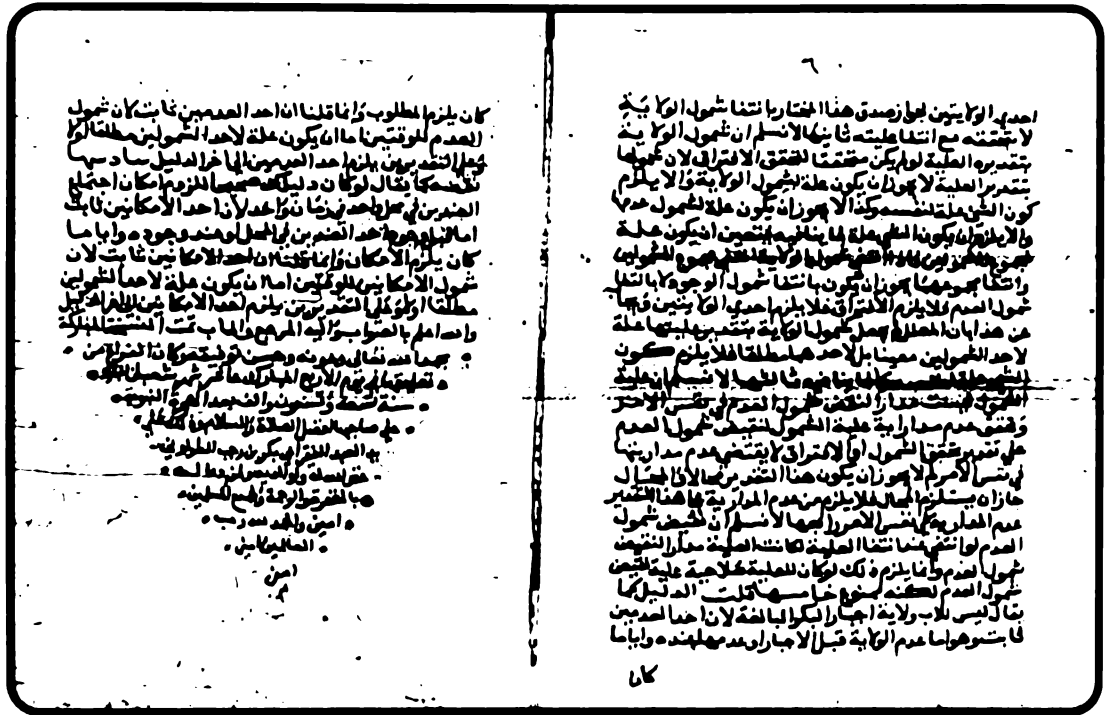 ٦
احدي الولايتين لجواز صدق هذا المختار بانتفا شمول الولاية
لا تحققه مع انتفا عليته ثانيها لا نسلم ان شمول الولاية
بتقدير العلية لو لم يكن متحققا لتحقق الافتراق لان شمولها
بتقدير العلية لا يجوز ان يكون علة لشمول الولاية والا يلزم
كون الشئ علة لنفسه وكذا لا يجوز ان يكون علة لشمول عدمها
والا يلزم ان يكون الشئ علة لما ينافيه فتعين ان يكون علة
شمول الولاية
وانتفا مجموعهما يجوز ان يكون بانتفا شمول الوجود لا بانتفا
شمول العدم فلا يلزم الافتراق فلا يلزم احدي الولايتين
عن هذا بان المطلوب يحصل شمول الولاية بتقدير عليتها علة
لاحد الشمولين معينا بل لاحدهما مطلقا فلا يلزم كون
ينافيه ثالثها لا نسلم ان علية
الشمول ليست مدارا لنقيض شمول العدم في نفس الامر
وتحقق عدم مدارية علية الشمول لنقيض شمول العدم
علي تقدير تحقق الشمول او الافتراق لا يقتضي عدم مداريتها
في نفس الامر لم لا يجوز ان يكون هذا التقدير محالا والمحال
جاز ان يستلزم المحال فلا يلزم من عدم المدارية علي هذا التقدير
عدم المدارية في نفس الامر رابعها لا نسلم ان نقيض شمول
العدم لو انتفي عند انتفا العلية لكانت العلية مدارا لنقيض
شمول العدم وانما يلزم ذلك لو كان للعلية صلاحية علية نقيض
شمول العدم لكنه ممنوع خامسها قلت الدليل كما
يقال ليس للاب ولاية اجبار البكر البالغة لان احد العدمين
ثابت وهو اما عدم الولاية قبل الاجبار او عدمها عنده واياما
كان
كان يلزم المطلوب وانما قلنا ان احد العدمين ثابت لان شمول
العدم للوقتين اما ان يكون علة لاحد الشمولين مطلقا اولا
وعلي التقديرين يلزم احد العدمين الي اخر الدليل سادسها
نقضه كما يقال لو كان دليلكم صحيحا للزم امكان اجتماع
الضدين في محل واحد في زمان واحد لان احد الامكانين ثابت
اما قبل وجود احد الضدين في المحل او عند وجوده واياما
كان يلزم الامكان وانما قلنا ان احد الامكانين ثابت لان
شمول الامكانين للوقتين اما ان يكون علة لاحد الشمولين
مطلقا اولا وعلي التقديرين يلزم احد الامكانين الي اخر الدليل
والله اعلم بالصواب واليه المرجع والماب تمت المباركة
بحمد الله تعالي وعونه وحسن توفيقه وكان الفراغ من
تعليقها في يوم الاربع المبارك عاشر شهر
سنة تسعة وتسعون والف بعد الهجرة النبوية
علي صاحبها افضل الصلاة والسلام
العبد
غفر الله له ولوالديه
بالمغفرة والرحمة ولجميع المسلمين
امين والحمد لله رب
العالمين امين
امين
م